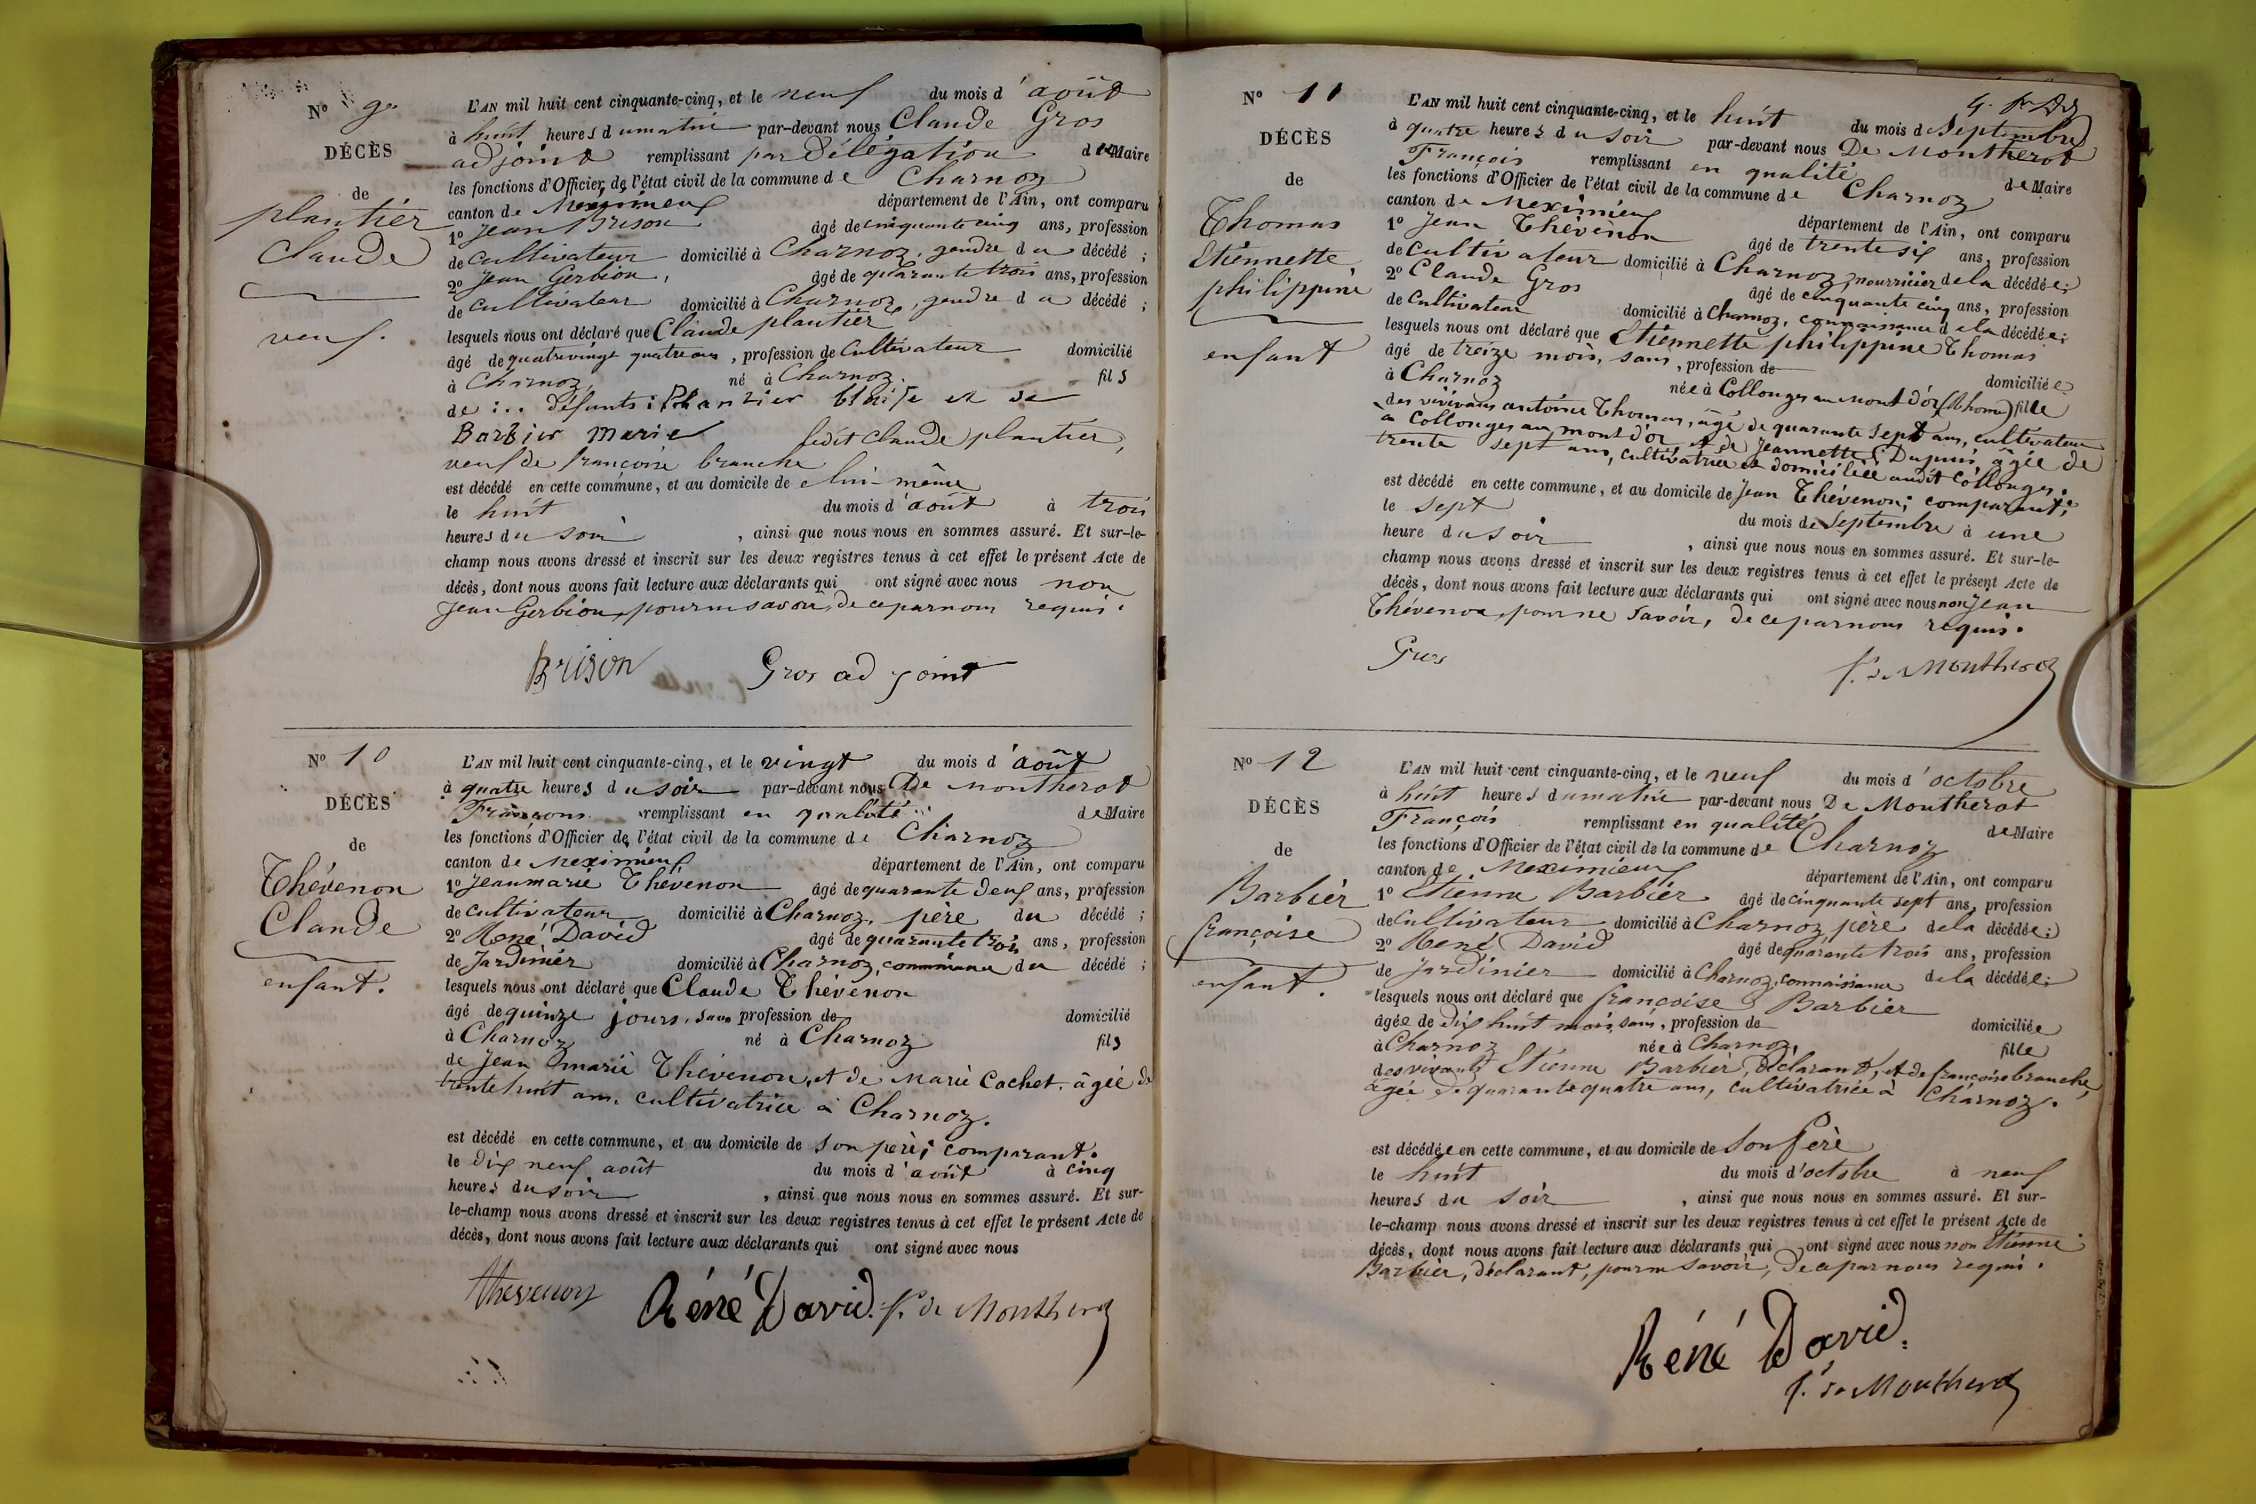 N° 9
DÉCÈS
de
plantier
Claude
veuf.
L'AN mil huit cent cinquante-cinq, et le neuf du mois d'août
à huit heures du matin par-devant nous Claude Gros
adjoint remplissant par délégation de Maire
les fonctions d'Officier de l'état civil de la commune de Charnoz
canton de Meximieux département de l'Ain, ont comparu
1° Jean Brison âgé de cinquante cinq ans, profession
de cultivateur domicilié à Charnoz, gendre du décédé ;
2° Jean Gerbion, âgé de quarante trois ans, profession
de cultivateur domicilié à Charnoz, gendre du décédé ;
lesquels nous ont déclaré que Claude plantier
âgé de quatre vingt quatre ans, profession de Cultivateur domicilié
à Charnoz, né à Charnoz. fils
de défunts Plantier blaise et de
Barbier Marie ledit Claude plantier,
veuf de françoise branche
est décédé en cette commune, et au domicile de lui-même
le huit du mois d'août à trois
heures du soir, ainsi que nous nous en sommes assuré. Et sur-le-
champ nous avons dressé et inscrit sur les deux registres tenus à cet effet le présent Acte de
décès, dont nous avons fait lecture aux déclarants qui ont signé avec nous non
Jean Gerbion, pour ne savoir, de ce par nous requis.
Brison Gros adjoint
N° 10
DÉCÈS
de
Thévenon
Claude
enfant.
L'AN mil huit cent cinquante-cinq, et le vingt du mois d'août
à quatre heures du soir par-devant nous De Montherot
François remplissant en qualité de Maire
les fonctions d'Officier de l'état civil de la commune de Charnoz
canton de Meximieux département de l'Ain, ont comparu
1° Jean marie Thévenon âgé de quarante deux ans, profession
de cultivateur domicilié à Charnoz, père du décédé ;
2° René David âgé de quarante trois ans, profession
de Jardinier domicilié à Charnoz, du décédé ;
lesquels nous ont déclaré que Claude Thévenon
âgé de quinze jours, sans profession de domicilié
à Charnoz né à Charnoz fils
de Jean marie Thévenon, et de Marie Cachet, âgée de
trente huit ans, cultivatrice à Charnoz.
est décédé en cette commune, et au domicile de son père, comparant.
le dix neuf août du mois d'août à cinq
heures du soir, ainsi que nous nous en sommes assuré. Et sur-
le-champ nous avons dressé et inscrit sur les deux registres tenus à cet effet le présent Acte de
décès, dont nous avons fait lecture aux déclarants qui ont signé avec nous
thevenon Réné David. f. de Montherot
N° 11
DÉCÈS
de
Thomas
Etiennette
philippine
enfant
L'AN mil huit cent cinquante-cinq, et le huit du mois de Septembre
à quatre heures du soir par-devant nous De Montherot
François remplissant en qualité de Maire
les fonctions d'Officier de l'état civil de la commune de Charnoz
canton de Meximieux département de l'Ain, ont comparu
1° Jean Thévenon âgé de trente six ans, profession
de cultivateur domicilié à Charnoz, nourricier de la décédée ;
2° Claude Gros âgé de cinquante cinq ans, profession
de Cultivateur domicilié à Charnoz, connaissance de la décédée ;
lesquels nous ont déclaré que Etiennette philippine Thomas
âgé de treize mois, sans, profession de domiciliée
à Charnoz née à Collonges au Mont d'or (Rhône) fille
des vivans antoine Thomas, âgé de quarante sept ans, cultivateur
à Collonges au mont d'or et de Jeannette Dupuis, âgée de
trente sept ans, cultivatrice et domiciliée audit Collonges.
est décédé en cette commune, et au domicile de Jean Thévenon, comparant,
le sept du mois de Septembre à une
heure du soir, ainsi que nous nous en sommes assuré. Et sur-le-
champ nous avons dressé et inscrit sur les deux registres tenus à cet effet le présent Acte de
décès, dont nous avons fait lecture aux déclarants qui ont signé avec nous non Jean
Thévenon, pour ne savoir, de ce par nous requis.
Gros f. de Montherot
N° 12
DÉCÈS
de
Barbier
françoise
enfant.
L'AN mil huit cent cinquante-cinq, et le neuf du mois d'octobre
à huit heures du matin par-devant nous De Montherot
François remplissant en qualité de Maire
les fonctions d'Officier de l'état civil de la commune de Charnoz
canton de Meximieux département de l'Ain, ont comparu
1° Etienne Barbier âgé de cinquante sept ans, profession
de Cultivateur domicilié à Charnoz, père de la décédée ;
2° René David âgé de quarante trois ans, profession
de Jardinier domicilié à Charnoz, connaissance de la décédée ;
lesquels nous ont déclaré que françoise Barbier
âgée de dix huit mois, sans, profession de domiciliée
à Charnoz née à Charnoz, fille
des vivants Etienne Barbier, déclarant, et de françoise branche,
âgée de quarante quatre ans, cultivatrice à Charnoz.
est décédée en cette commune, et au domicile de Son Père
le huit du mois d'octobre à neuf
heures du soir, ainsi que nous nous en sommes assuré. Et sur-
le-champ nous avons dressé et inscrit sur les deux registres tenus à cet effet le présent Acte de
décès, dont nous avons fait lecture aux déclarants qui ont signé avec nous non Etienne
Barbier, déclarant, pour ne savoir, de ce par nous requis.
Réné David.
f. de Montherot